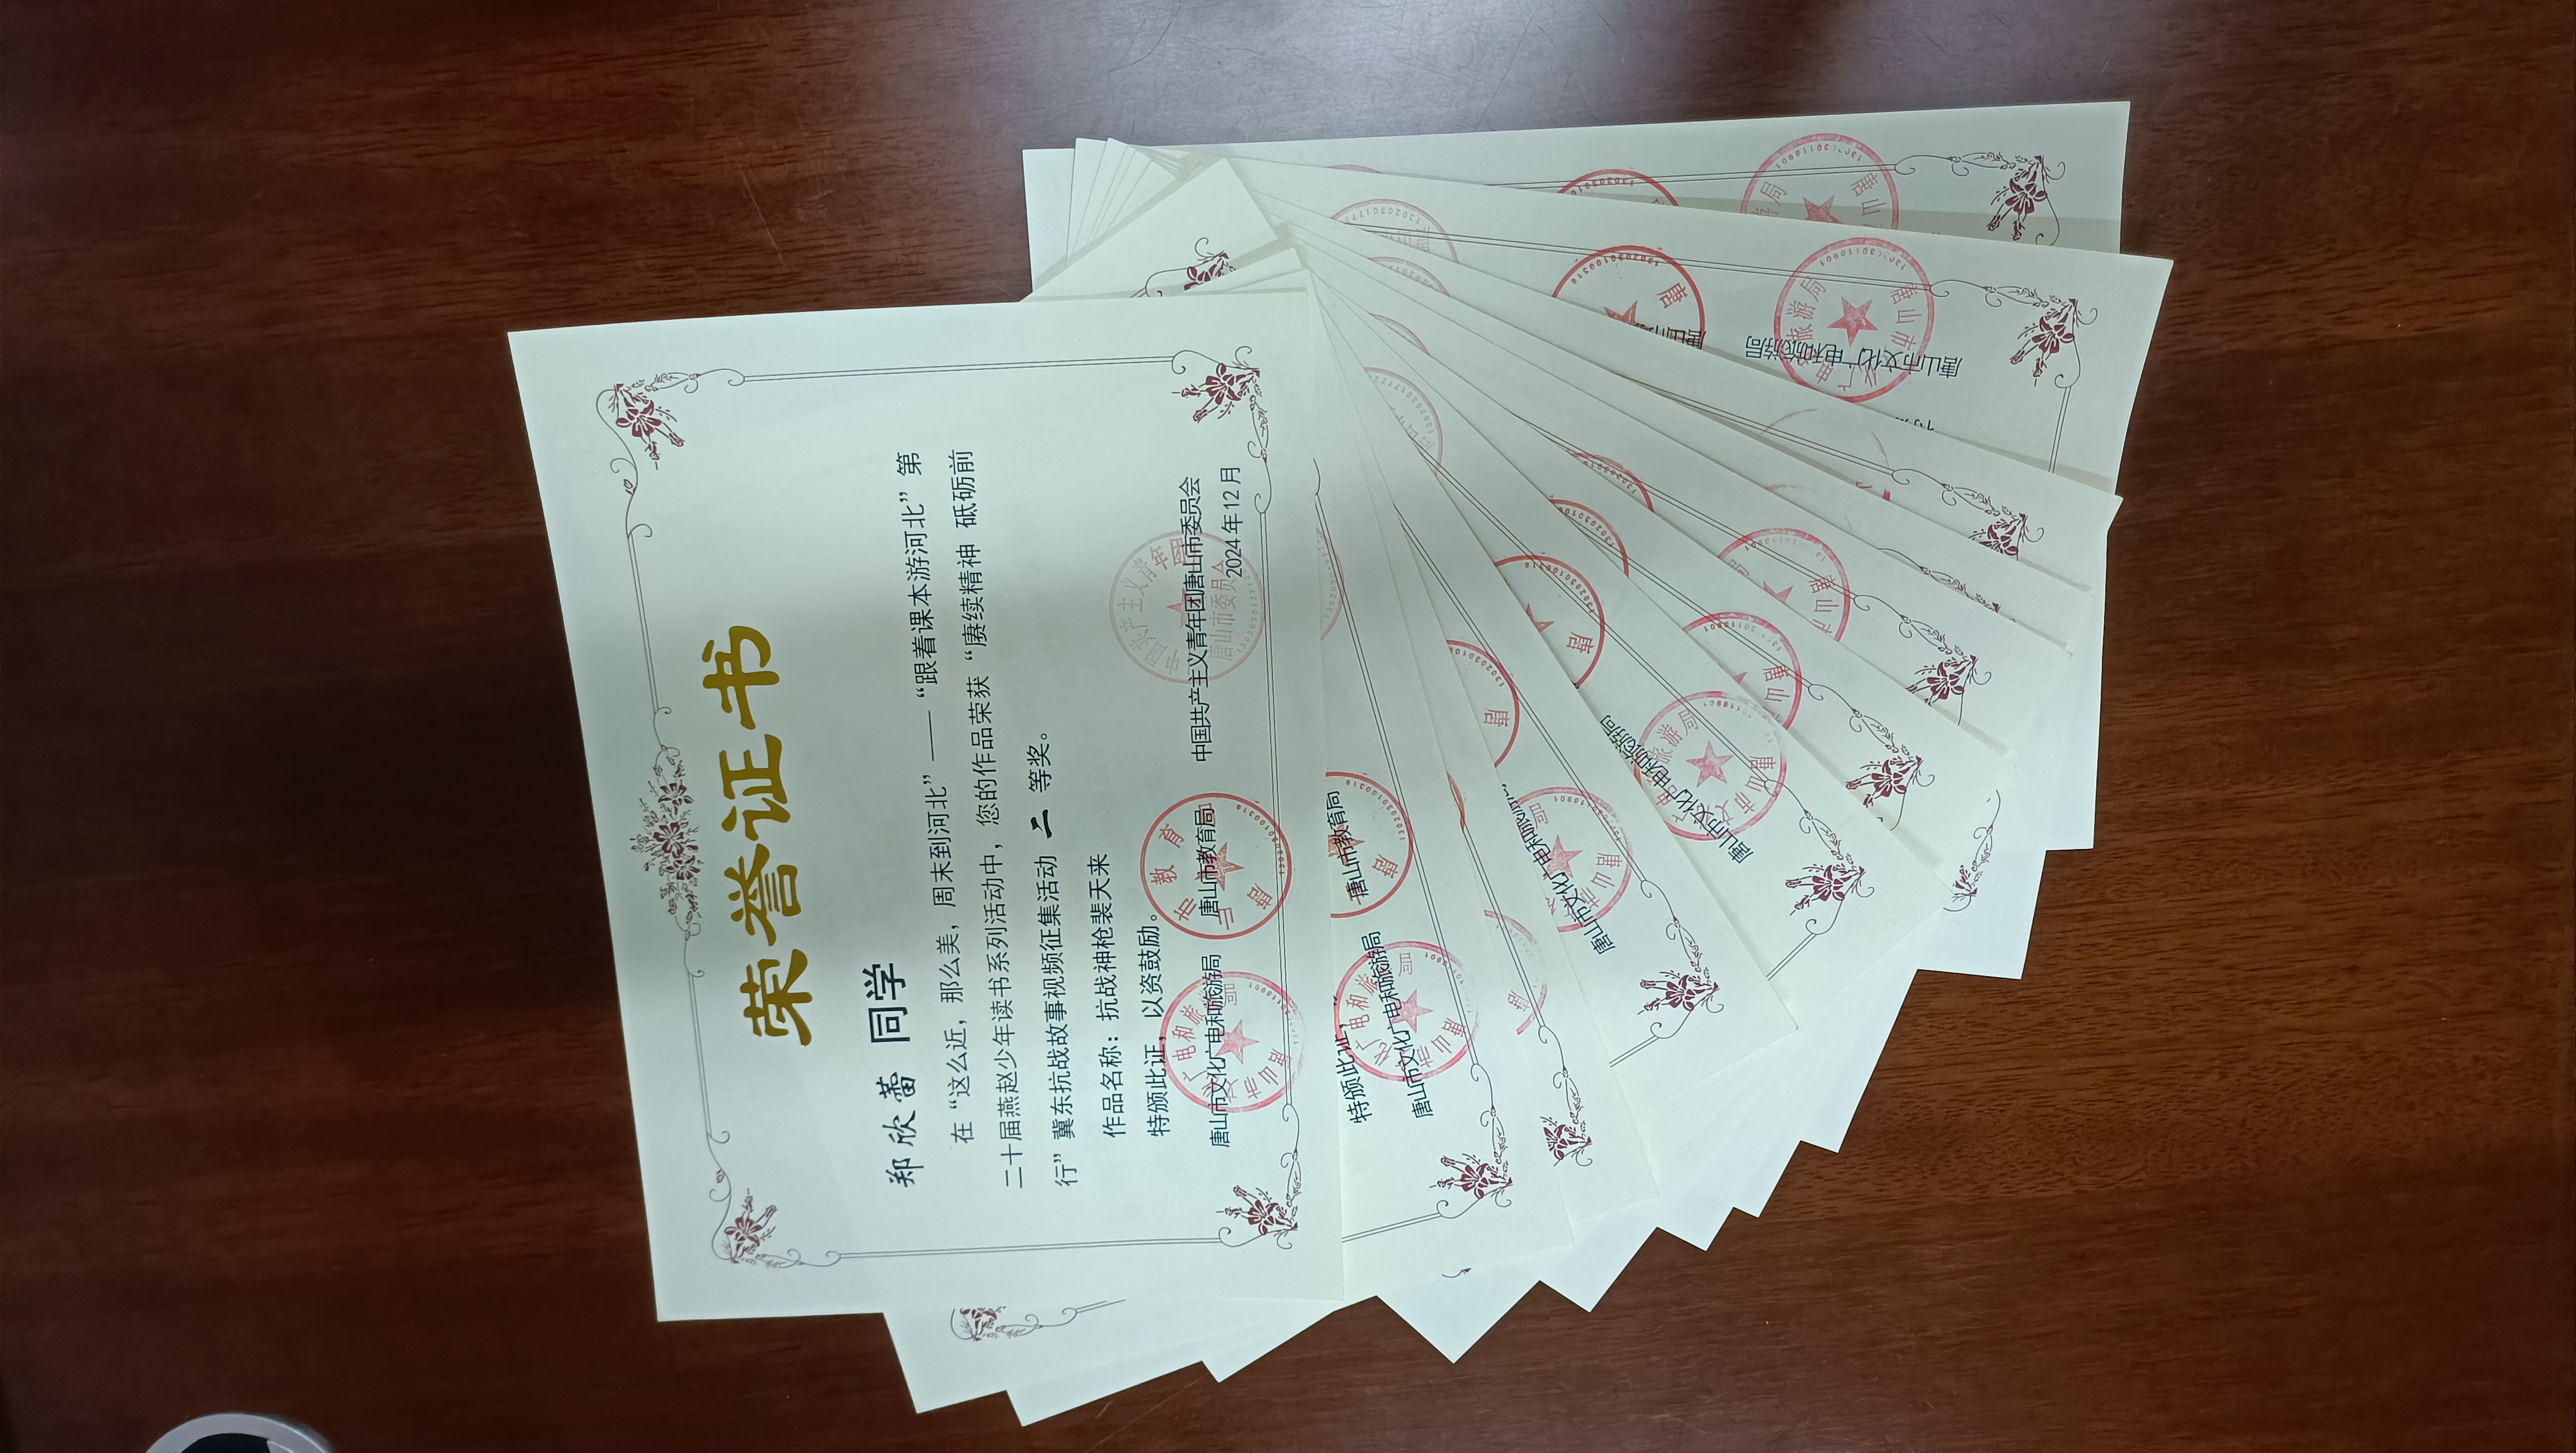 荣誉证书
郑欣蕾 同学
在“这么近，那么美，周末到河北”——“跟着课本游河北”第
二十届燕赵少年读书系列活动中，您的作品荣获“赓续精神 砥砺前
行”冀东抗战故事视频征集活动 二 等奖。
作品名称：抗战神枪裴天来
特颁此证，以资鼓励。
唐山市文化广电和旅游局 唐山市教育局 中国共产主义青年团唐山市委员会
2024年12月
特颁此证，
唐山市文化广电和旅游局 唐山市教育局
唐山市文化广电和旅游
唐山市文化广电和旅游局
唐山市文化广电和旅游局